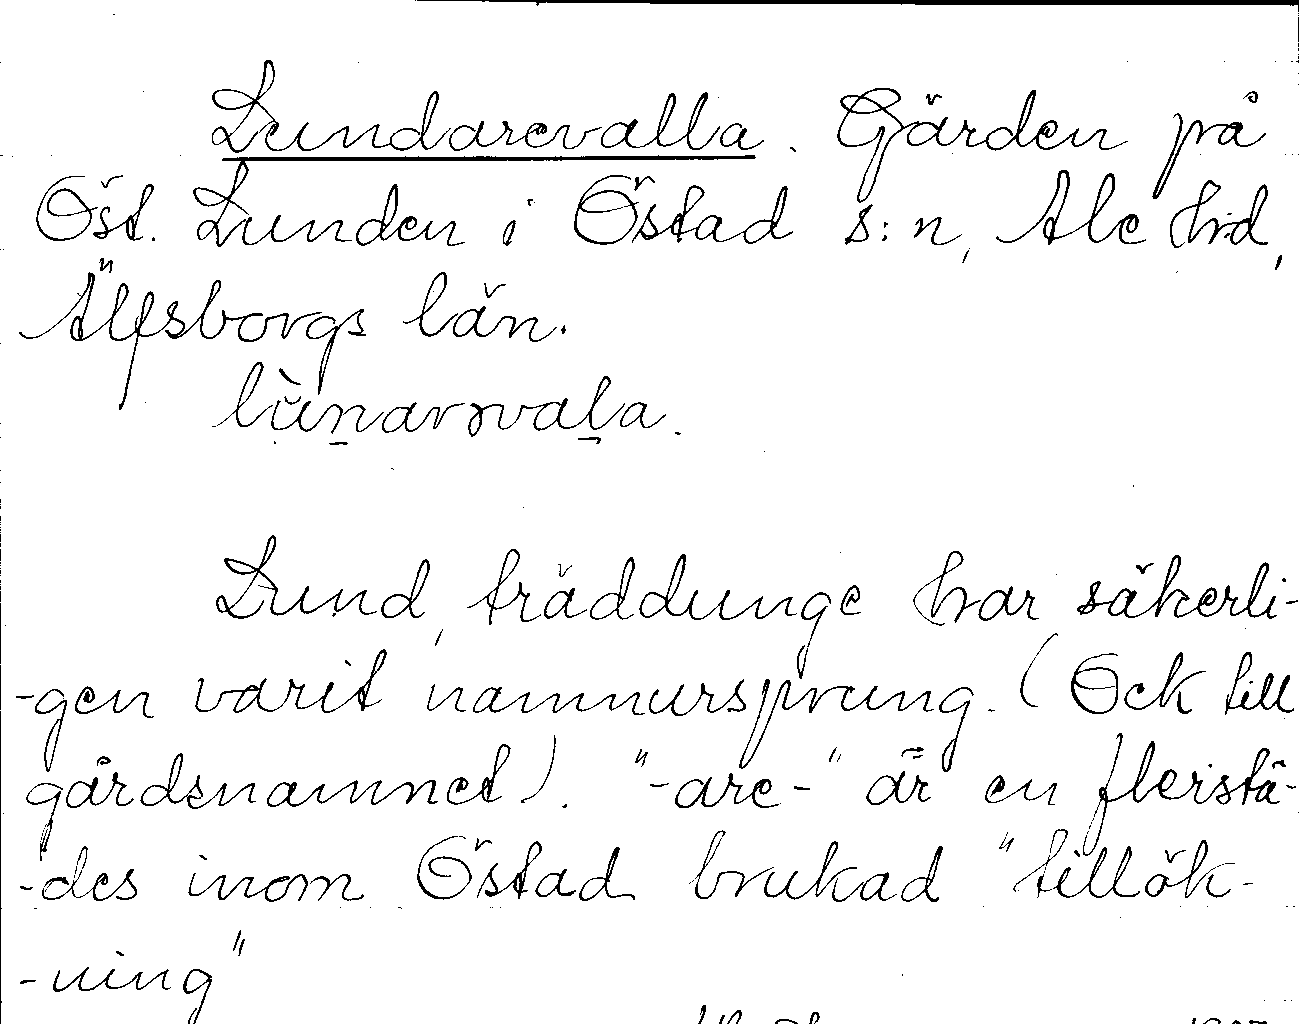 Lundarevalla. Gärden på
Öst. Lunden i Östad s:n, Ale h:d,
Älfsborgs län.
lùnarvala.
Lund, träddunge har säkerli-
-gen varit namnursprung. (Ock till
gårdsnamnet). "-are-" är en flerstä-
-des inom Östad brukad "tillök-
-ning"